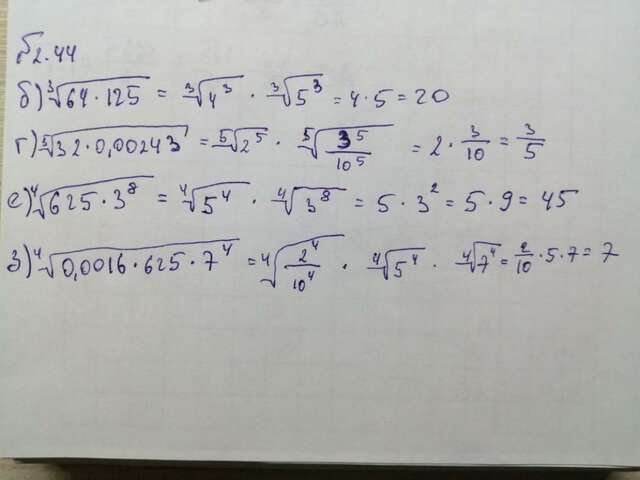 №2.44
б) ∛(64 · 125) = ∛(4³) · ∛(5³) = 4 · 5 = 20
г) ⁵√(32 · 0,00243) = ⁵√(2⁵) · ⁵√(3⁵/10⁵) = 2 · 3/10 = 3/5
е) ⁴√(625 · 3⁸) = ⁴√(5⁴) · ⁴√(3⁸) = 5 · 3² = 5 · 9 = 45
з) ⁴√(0,0016 · 625 · 7⁴) = ⁴√(2⁴/10⁴) · ⁴√(5⁴) · ⁴√(7⁴) = 2/10 · 5 · 7 = 7